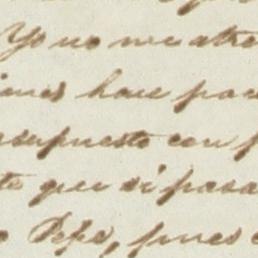 Yo no me atre
imes hace poc
nsupuesto con p
te que si pasa
o Pepe, pues